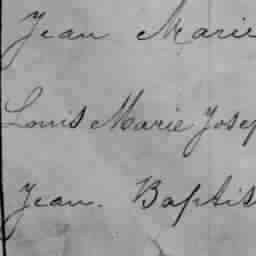 Jean Marie
Louis Marie Josep
Jean. Baptis